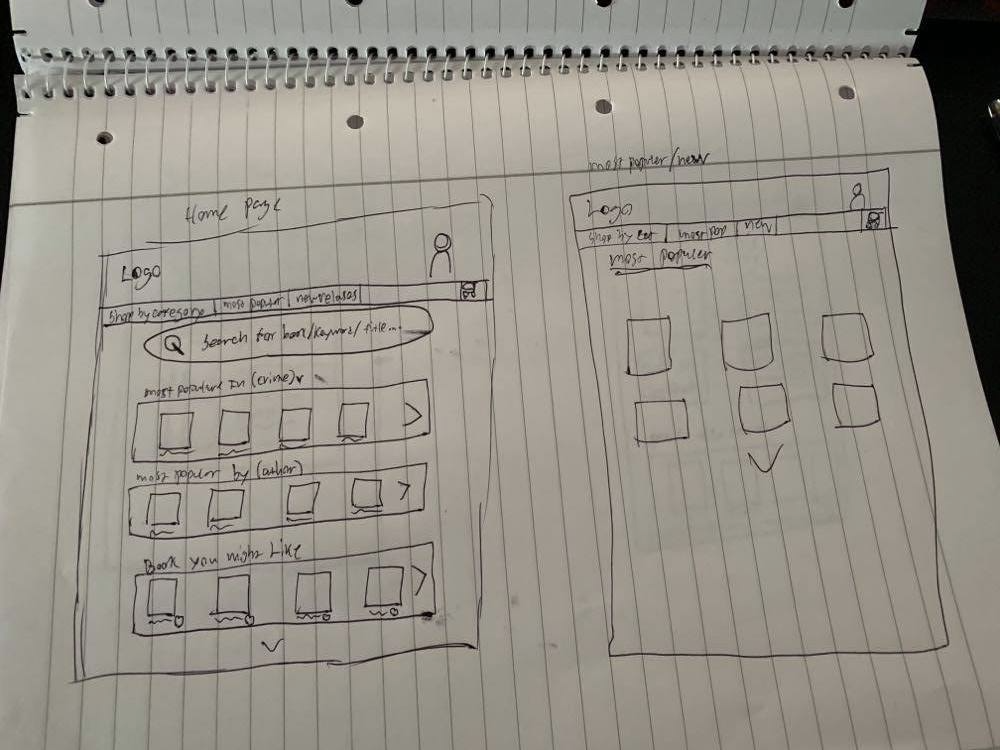 Home page
Logo
Shop by
most popular
new
Search for book/keyword/title...
most populure In (crime)
most populer by (athor)
Book you might Like
most populer/new
Logo
Shop by cat
most pop
new
most populer